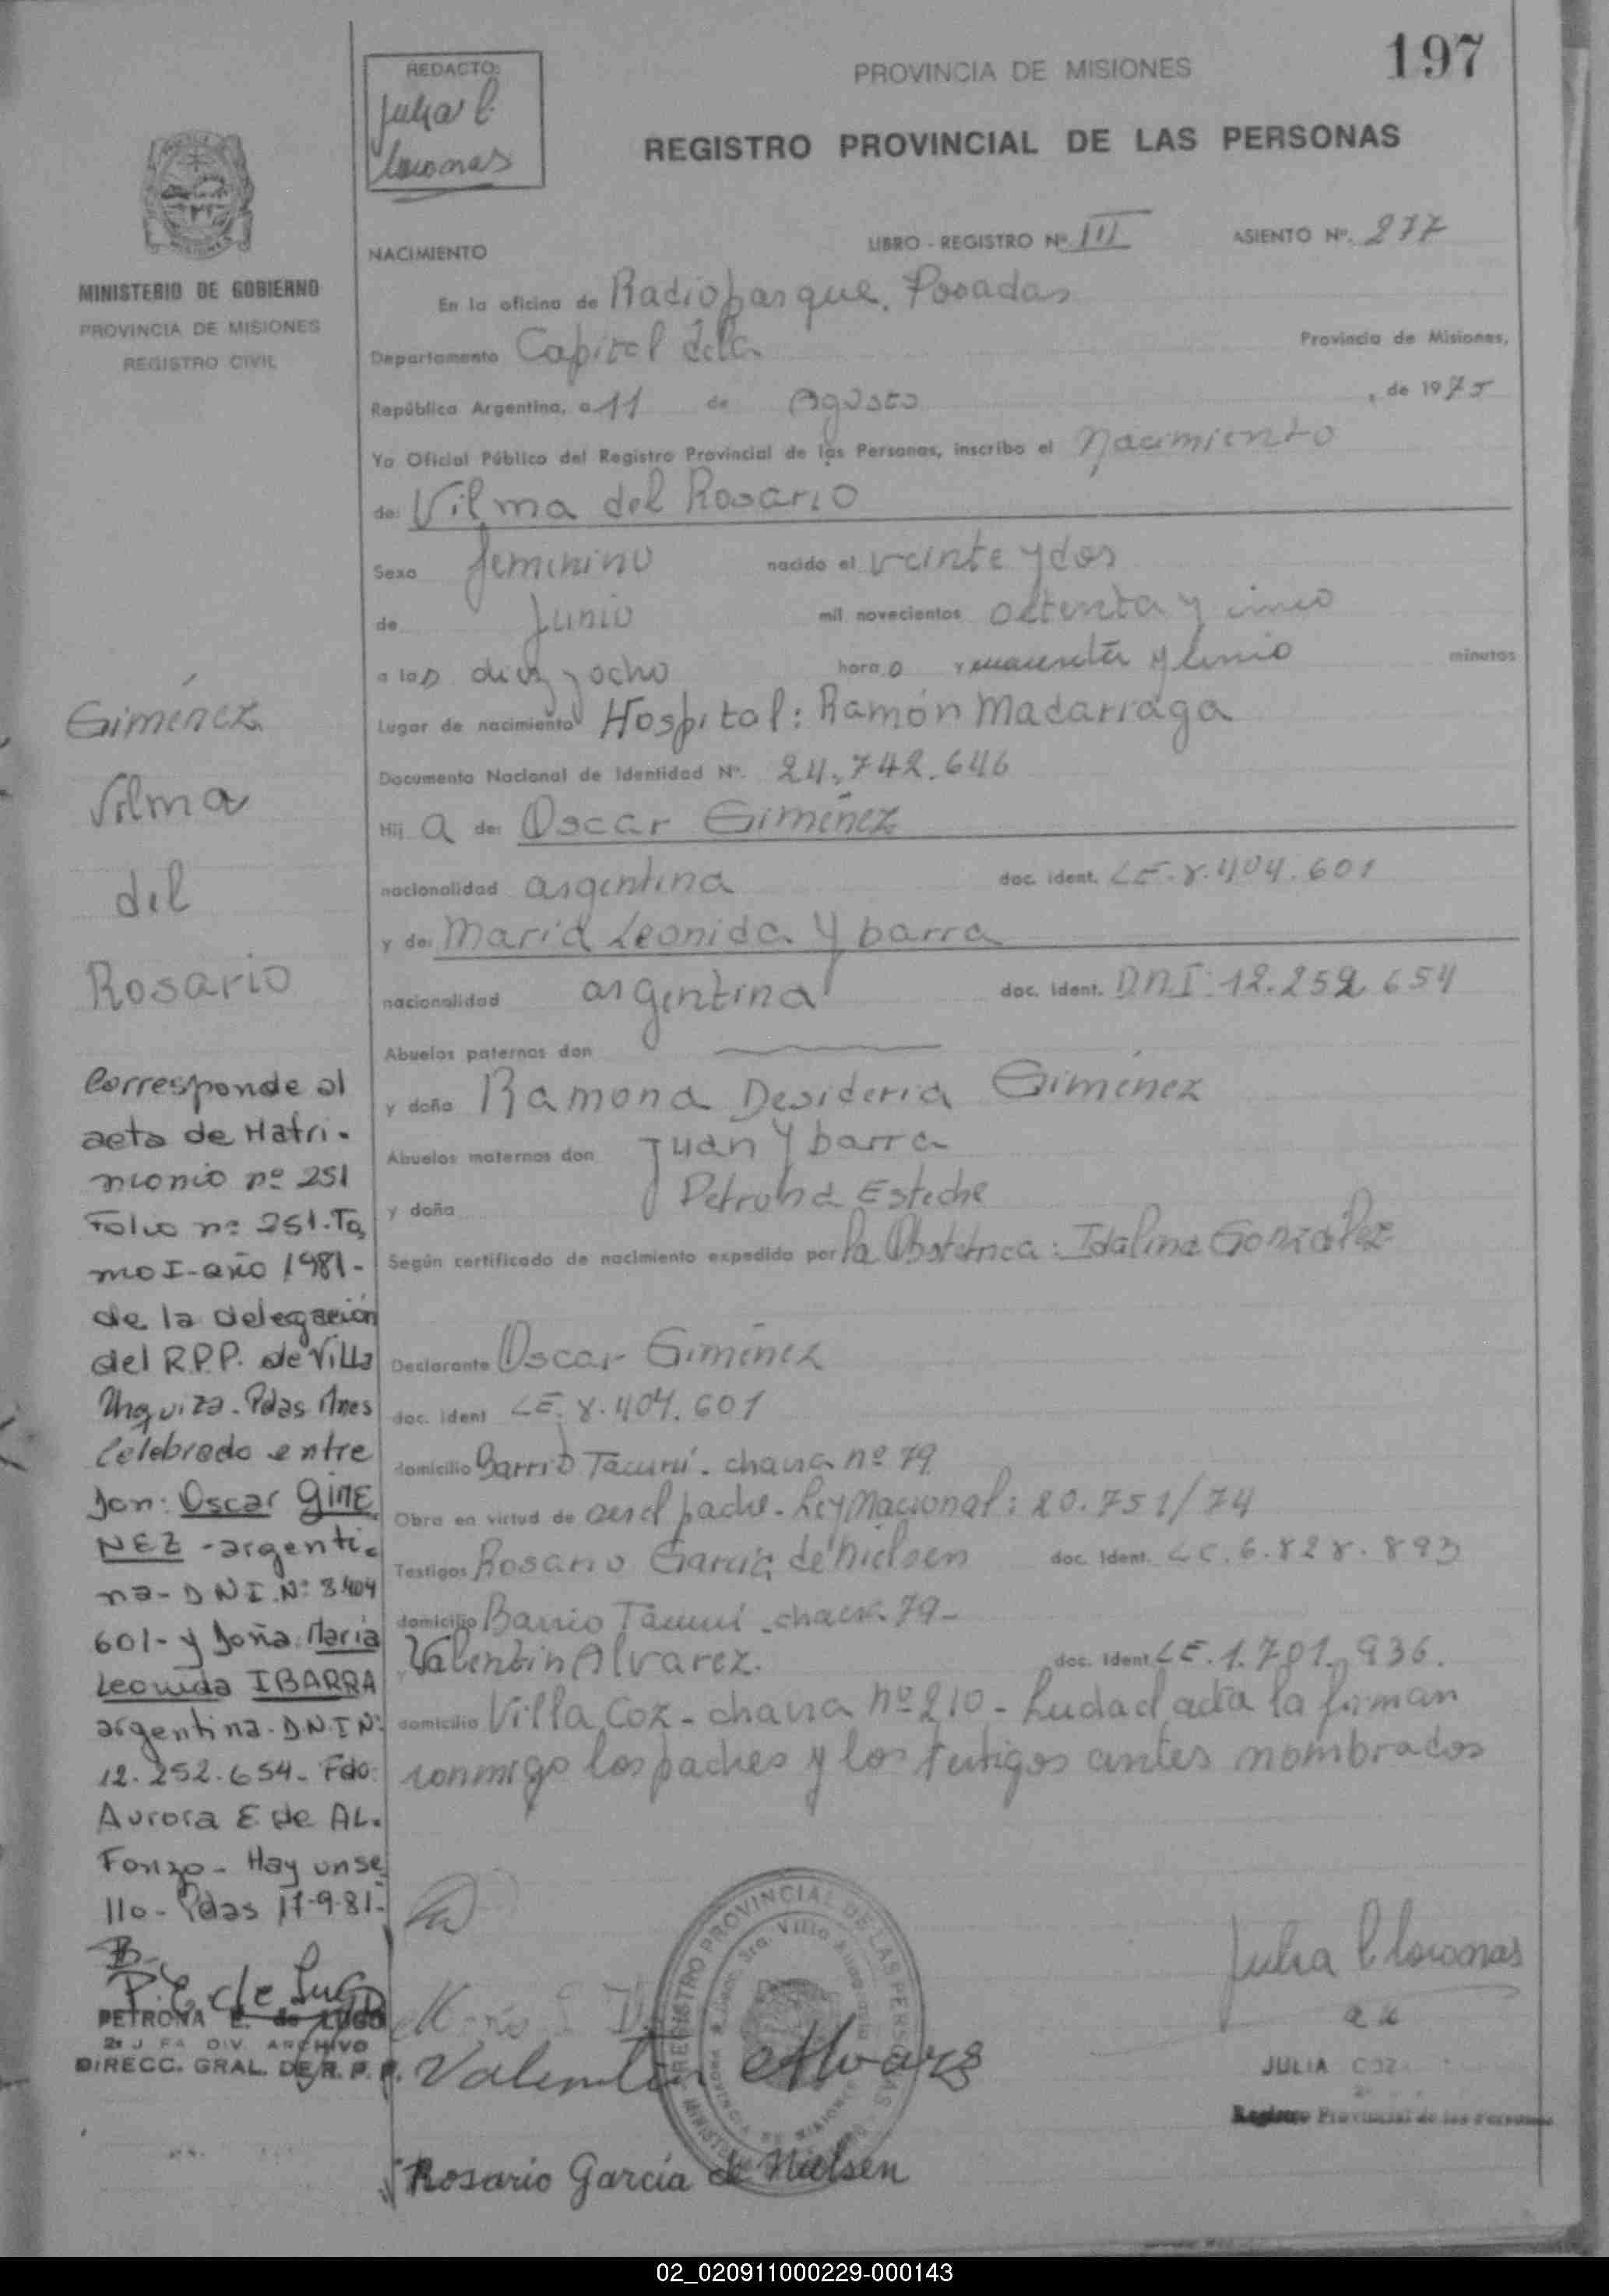 197
REDACTO:
Julia C.
PROVINCIA DE MISIONES
REGISTRO PROVINCIAL DE LAS PERSONAS
MINISTERIO DE GOBIERNO
PROVINCIA DE MISIONES
REGISTRO CIVIL
NACIMIENTO
LIBRO - REGISTRO Nº III
ASIENTO Nº. 277
En la oficina de Radioparque. Posadas
Departamento Capital dela Provincia de Misiones,
República Argentina, a 11 de Agosto, de 1975
Yo Oficial Público del Registro Provincial de las Personas, inscribo el Nacimiento
de: Vilma del Rosario
Sexo femenino nacido el veinte y dos
de Junio mil novecientos setenta y cinco
a las diez y ocho horas y cuarenta y cinco minutos
Lugar de nacimiento Hospital: Ramón Madarriaga
Documento Nacional de Identidad Nº. 24.742.646
Hij a de: Oscar Giménez
nacionalidad argentina doc. ident. LE. 8.404.601
y de: María Leonida Ybarra
nacionalidad argentina doc. ident. D.N.I. 12.252.654
Abuelos paternos don
y doña Ramona Desideria Giménez
Abuelos maternos don Juan Ybarra
y doña Petrona Esteche
Según certificado de nacimiento expedido por la Obstetrica: Idalina González
Declarante Oscar Giménez
doc. ident LE. 8.404.601
domicilio Barrio Tacurú. chacra nº 79
Obra en virtud de ser el padre - Ley Nacional: 20.751/74
Testigos Rosario García de Nielsen doc. ident. LC. 6.828.893
domicilio Barrio Tacurú - chacra 79-
Valentin Alvarez. doc. ident LE. 1.701.936.
domicilio Villa Coz - chacra nº 210 - Leída el acta la firman
conmigo los padres y los testigos antes nombrados
Giménez
Vilma
del
Rosario
Corresponde al
acta de Matri-
monio nº 251
Folio nº 251-To
mo I-año 1981-
de la delegación
del R.P.P. de Villa
Urquiza-Pdas Mnes
Celebrado entre
Don: Oscar GIME
NEZ -argenti-
na-DNI.Nº 8.404
601- y Doña María
Leonida IBARRA
argentina-D.N.I Nº
12.252.654- Fdo:
Aurora E de AL-
Fonzo- Hay un se
llo- Pdas 17-9-81-
P. E. de Lugo
PETRONA E. de LUGO
DIV ARCHIVO
DIRECC. GRAL. DE R. P. P.
Valentin Alvarez
Rosario García de Nielsen
REGISTRO PROVINCIAL DE LAS PERSONAS
Julia C
JULIA COZ
Registro Provincial de las Personas
02_020911000229-000143